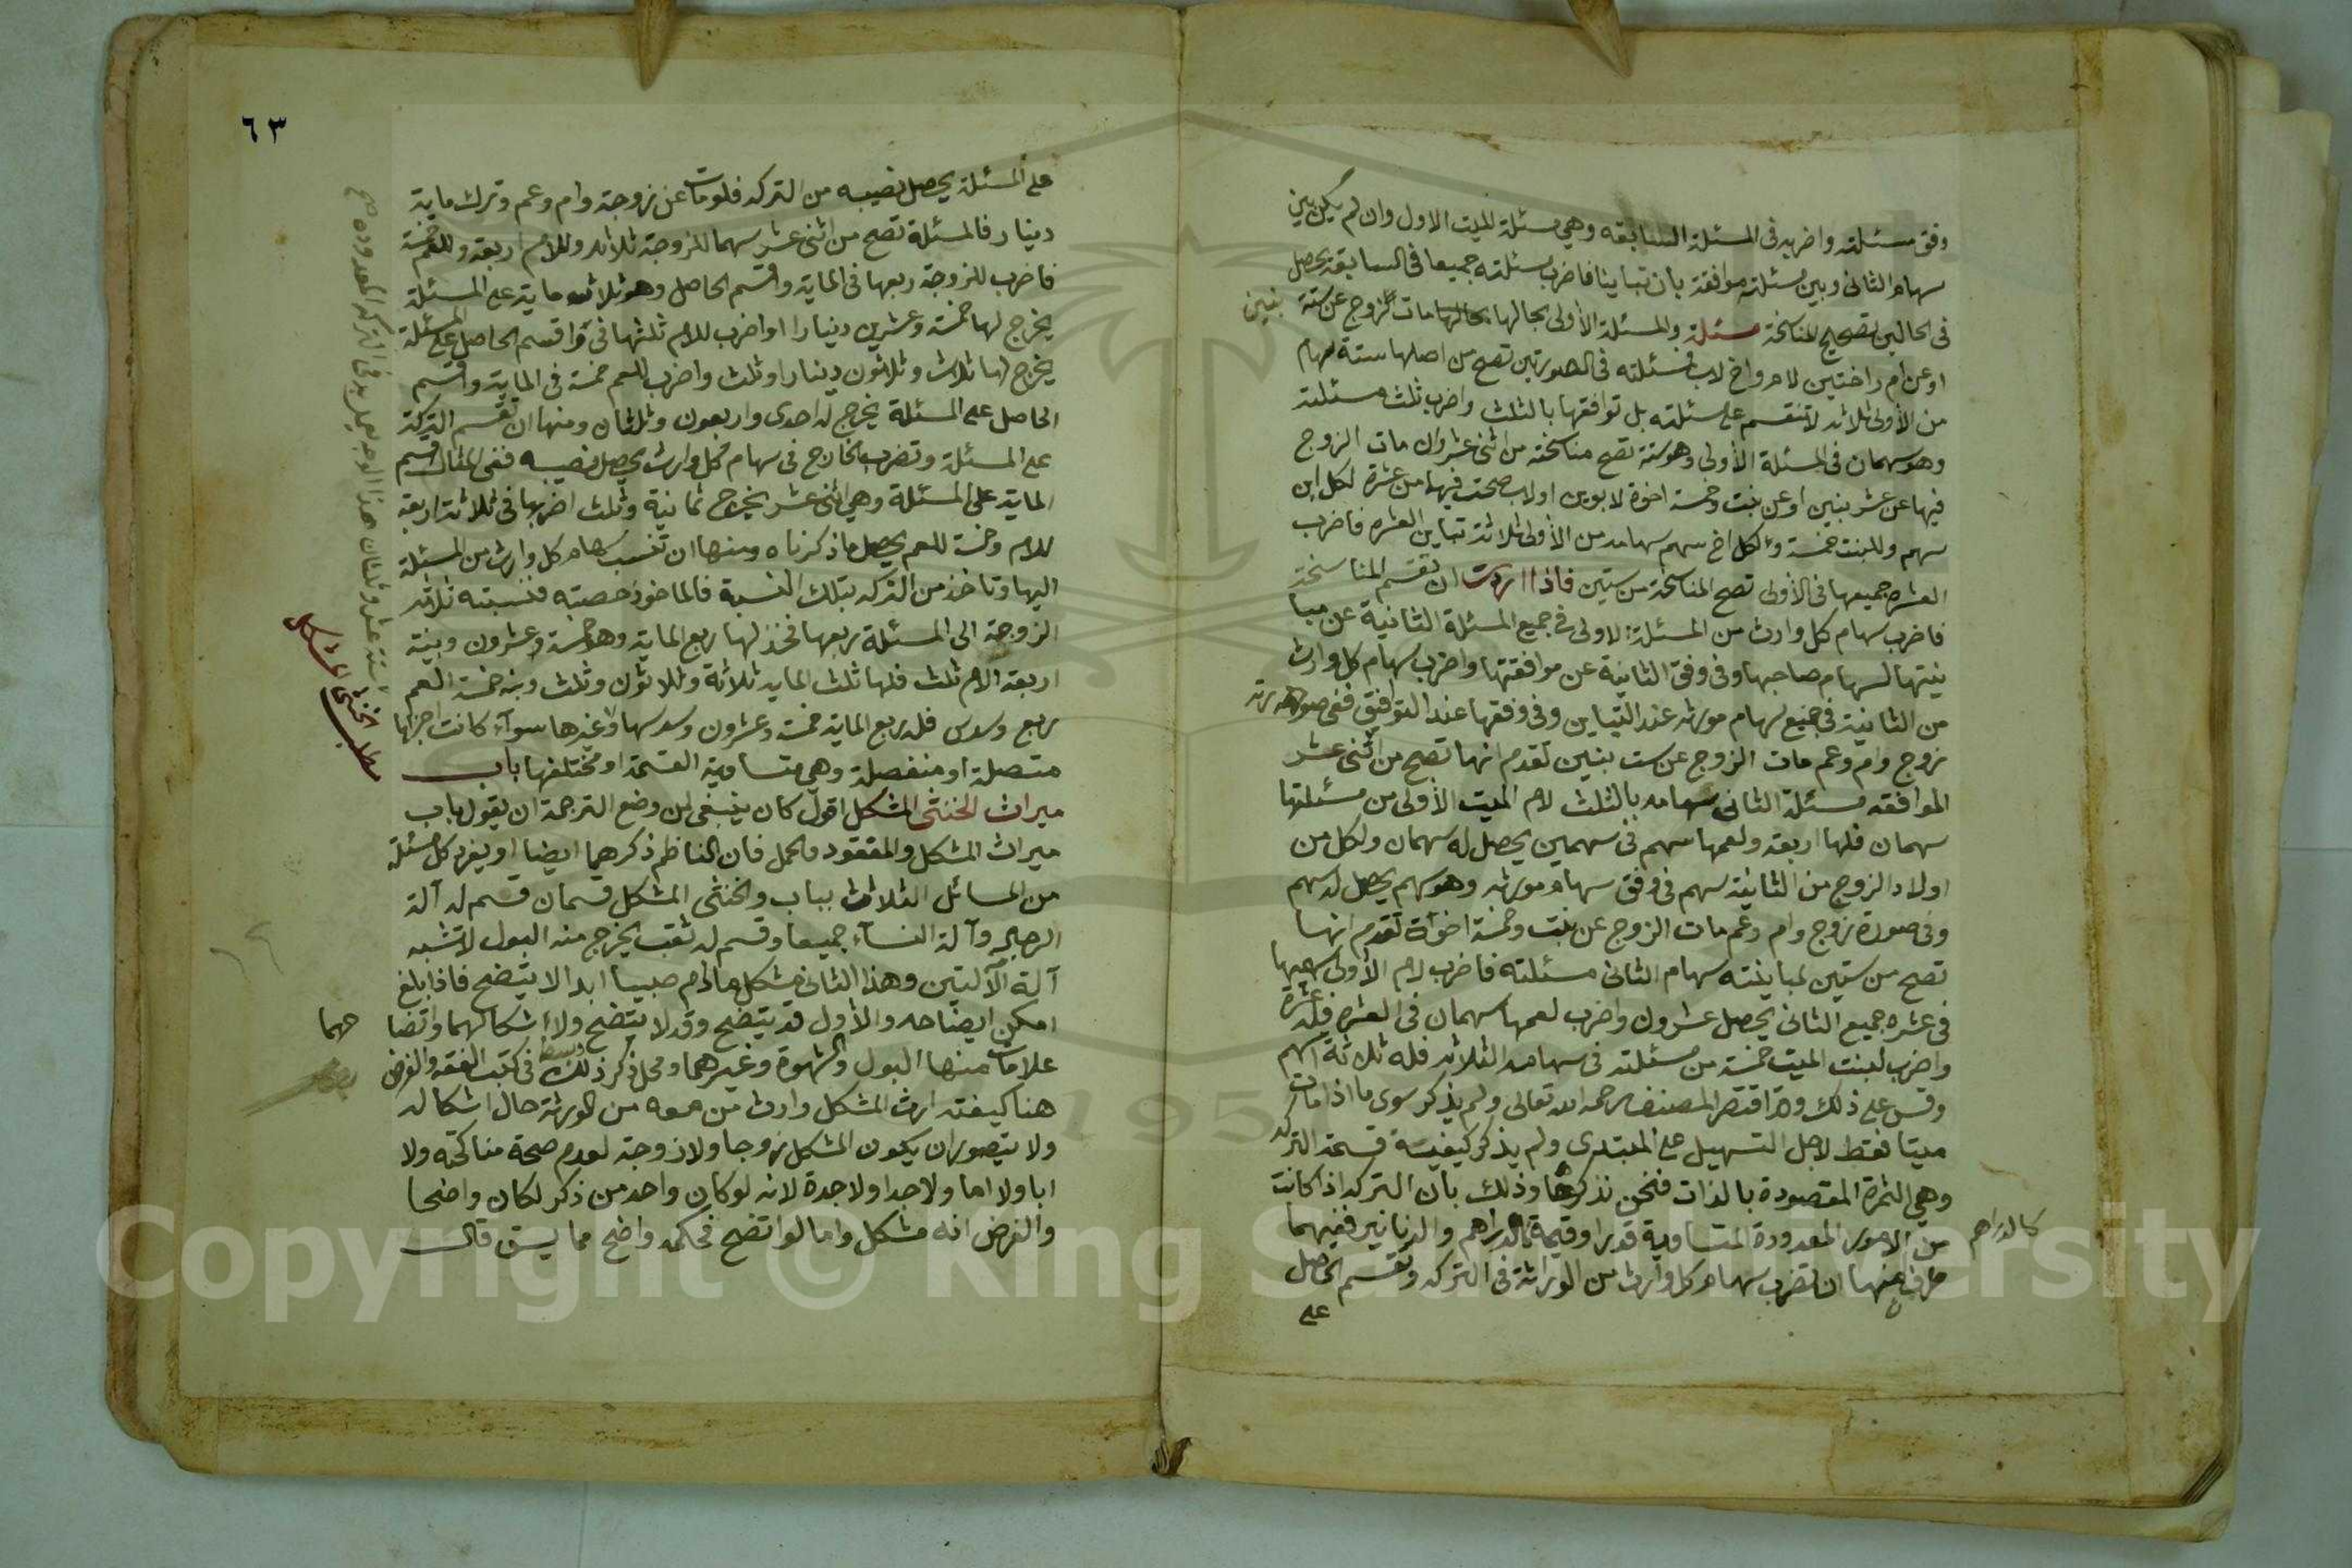 وفق مسئلته واضربه فى المسئلة السابقه وهي مسئلة الميت الاول وان لم يكن بين
سهام الثانى وبين مسئلته موافقة بان تباينا فاضرب مسئلته جميعا فى السابقة يحصل
فى الحالين تصحيح المناسخة مسئلة والمسئلة الأولى بحالها مات الزوج عن ستة
بنين
او عن ام واختين لام واخ لاب فمسئلته فى الصورتين تصح من اصلها ستة سهام
من الأولى ثلاثه لا تنقسم على مسئلته بل توافقها بالثلث واضرب ثلث مسئلته
وهو سهمان فى المسئلة الأولى وهو ستة تصح مناسخته من اثنى عشر وان مات الزوج
فيها عن عشر بنين او عن بنت وخمسة اخوة لابوين او لاب صحت فيهما من عشرة لكل ابن
سهم وللبنت خمسة ولكل اخ سهم سهامه من الأولى ثلاثة تباين العشره فاضرب
العشره جميعها فى الأولى تصح المناسخة من ستين فاذا اردت ان تقسم المناسخة
فاضرب سهام كل وارث من المسئلة الاولى فى جميع المسئلة الثانية عن مبا
ينتها لسهام صاحبها وفى وفق الثانية عن موافقتها واضرب سهام كل وارث
من الثانية فى جميع سهام مورثه عند التباين وفى وفقها عند التوافق ففى صورة
زوج وام وعم مات الزوج عن ست بنين تقدم انها تصح من اثنى عشر
الموافقه مسئلة الثانى سهامه بالثلث لام الميت الأولى من مسئلتها
سهمان فلها اربعة ولعمها سهم فى سهمين يحصل له سهمان ولكل من
اولاد الزوج من الثانية سهم فى وفق سهام مورثه وهو سهم يحصل له سهم
وفى صورة زوج وام وعم مات الزوج عن بنت وخمسة اخوة تقدم انها
تصح من ستين لمباينته سهام الثانى مسئلته فاضرب لام الأولى سهميها
فى عشره جميع الثانى يحصل عشرون واضرب لعمها سهمان فى العشره فله عشرة
واضرب لبنت الميت خمسة من مسئلته فى سهامه الثلاثه فله ثلاثة اسهم
وقس على ذلك وقد اقتصر المصنف رحمه الله تعالى ولم يذكر سوى ما اذا مات
ميتا فقط لاجل التسهيل على المبتدى ولم يذكر كيفية قسمة التركه
وهي الثمرة المقصودة بالذات فنحن نذكرها وذلك بان التركه اذا كانت
من الامور المعدودة المتساوية قدرا وقيمة كالدراهم والدنانير ففيهما
كالدراهم
طرق منها ان تضرب سهام كل وارث من الورثة فى التركه وتقسم الحاصل
على
٦٣
على المسئلة يحصل نصيبه من التركه فلو مات عن زوجة وام وعم وترك ماية
دينار فالمسئلة تصح من اثنى عشر سهما للزوجة ثلاثه وللام اربعة وللعم خمسة
فاضرب للزوجة ربعها فى الماية واقسم الحاصل وهو ثلاث ماية على المسئلة
يخرج لها خمسة وعشرين دينارا واضرب للام ثلثها فى واقسم الحاصل على المسئلة
يخرج لها ثلاث وثلاثون دينارا وثلث واضرب للعم خمسة فى الماية واقسم
الحاصل على المسئلة يخرج له احدى واربعون وثلثان ومنها ان تقسم التركة
على المسئلة وتضرب الخارج فى سهام كل وارث يحصل نصيبه ففى المثال اقسم
الماية على المسئلة وهي اثنى عشر يخرج ثمانية وثلث اضربها فى ثلاثة اربعة
للام وخمسة للعم يحصل ما ذكرناه ومنها ان تنسب سهام كل وارث من المسئلة
اليها وتاخذ من التركه بتلك النسبة فالماخوذ حصته فنسبته ثلاثه
الزوجة الى المسئلة ربعها فخذ لها ربع الماية وهو خمسة وعشرون ونسبة
اربعة الام ثلث فلها ثلث الماية ثلاثة وثلاثون وثلث ونسبة خمسة العم
ربع وسدس فله ربع الماية خمسة وعشرون وسدسها وغيرها سوآء كانت اجزاها
متصلة او منفصلة وهي متساوية القسمة او مختلفها باب
ميراث الخنثى المشكل اقول كان ينبغى لمن وضع الترجمة ان يقول باب
ميراث المشكل والمفقود والحمل فان الناظم ذكرهما ايضا او يفرد كل مسئلة
من المسائل الثلاث بباب والخنثى المشكل قسمان قسم له آلة
الرجال وآلة النسآء جميعا وقسم له ثقب يخرج منه البول لا تشبه
آلة الآلتين وهذا الثانى مشكل ما دام صبيا ابدا لا يتضح فاذا بلغ
امكن ايضاحه والأول قد يتضح وقد لا يتضح ولا اشكالهما واتضا
حهما
علامات منها البول والشهوة وغيرهما ومحل ذكر ذلك وبسطه فى كتب الفقه والغرض
هنا كيفية ارث المشكل وارث من معه من الورثة حال اشكاله
ولا يتصور ان يكون المشكل زوجا ولا زوجة لعدم صحة مناكحته ولا
ابا ولا اما ولا جدا ولا جدة لانه لو كان واحد من ذكر لكان واضحا
والفرض انه مشكل واما لو اتضح فحكمه واضح مما سبق قال
مطلب الخنثى المشكل
Copyright © King Saud University
195